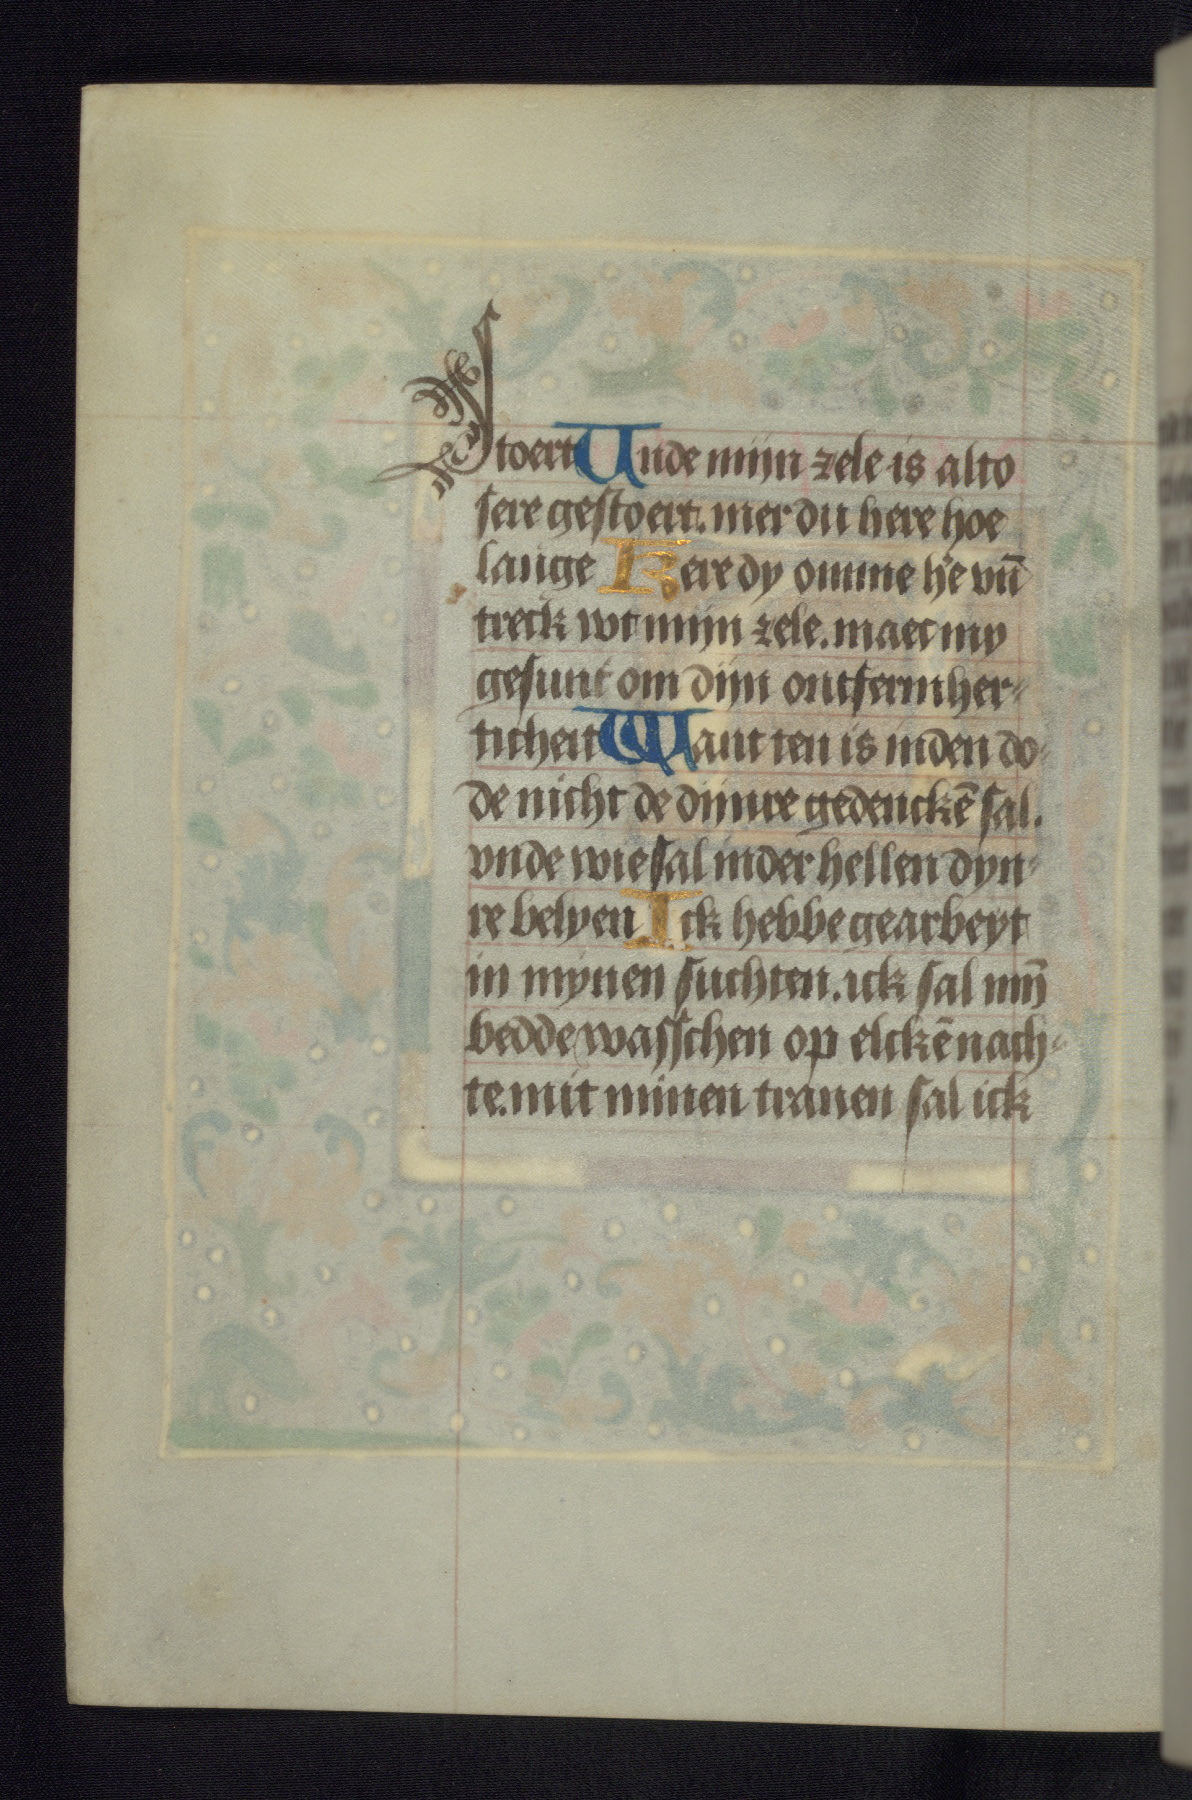 stoert Unde mijn zele is alto
sere gestoert. mer du here hoe
lange Kere dy omme hꝰe vn̄
treck wt mijn zele. maec my
gesunt om dijn ontfermher-
ticheit Want ten is inden do-
de nicht de dijnre gedenckē sal.
vnde wie sal inder hellen dyn-
re belyen Ick hebbe gearbeyt
in mynen suchten. ick sal mȳ
bedde wasschen op elckē nach-
te. mit minen tranen sal ick